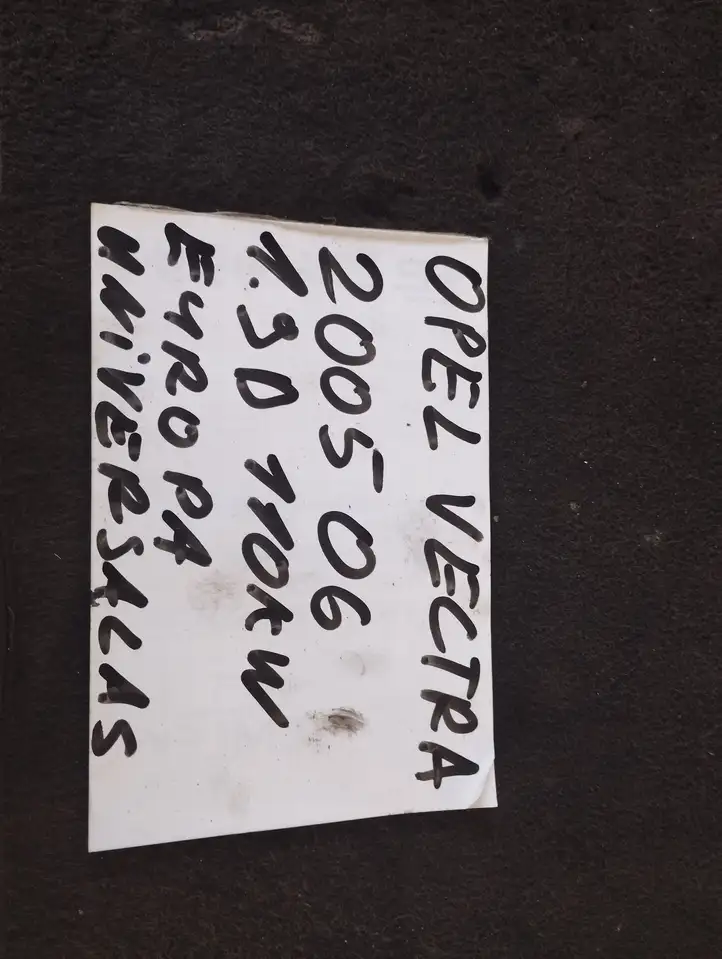 OPEL VECTRA
2005 06
1.9D 110kW
EUROPA
UNIVERSALAS